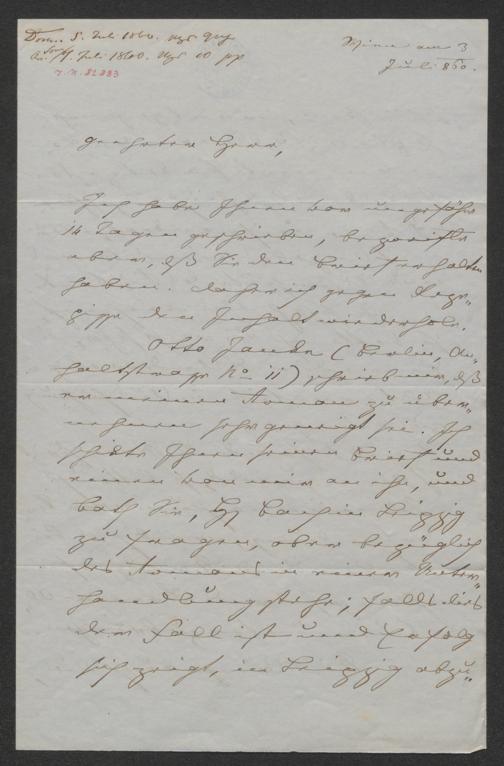 Wien am 3
Juli 860.
J. N. 82883
geehrter Herr,
Ich habe Ihnen vor ungefähr
14 Tagen geschrieben, bezweifle
aber, dß Sie den Brief erhalten
haben. Daher ich gegen
den Inhalt wiederhole.
Otto Janke (Berlin, An-
haltstrasse No 11) schrieb mir, dß
er meinen Roman zu über-
nehmen sehr geneigt sei. Ich
schickte Ihnen seinen Brief und
einen von mir an ihn, und
bath Sie, in Leipzig
zu fragen, ober bezüglich
des Romans in einer Unter-
handlung stehe; falls dies
der Fall ist und Erfolg
sich zeigt, in Leipzig abzu-